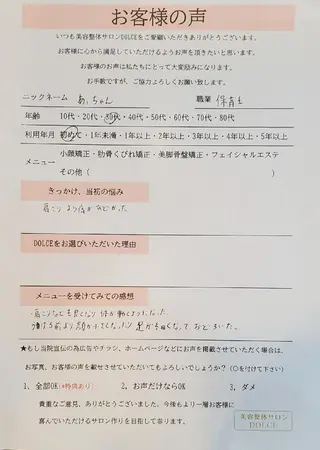 お客様の声
いつも美容整体サロンDOLCEをご愛顧いただきありがとうございます。
お客様に心から満足していただけるようお声を頂きたいと思います。
お客様のお声は私たちにとって大変励みになります。
お手数ですが、ご協力よろしくお願い致します。
ニックネーム あっちゃん 職業 保育士
年齢 10代・20代・30代・40代・50代・60代・70代・80代
利用年月 初めて・1年未満・1年以上・2年以上・3年以上・4年以上・5年以上
メニュー ・小顔矯正・肋骨くびれ矯正・美脚骨盤矯正・フェイシャルエステ
その他（ ）
きっかけ、当初の悩み
肩こり
DOLCEをお選びいただいた理由
メニューを受けてみての感想
・肩こりなど
足が
★もし当院宣伝の為広告やチラシ、ホームページなどにお声を掲載させていただく場合は、
お写真、お客様の声を載せさせていただいてもよろしいでしょうか？（○を付けて下さい）
1、全部OK（★特典あり） 2、お声だけならOK 3、ダメ
貴重なご意見、ありがとうございました。今後もより一層お客様に
喜んでいただけるサロン作りを目指して参ります。
美容整体サロン
DOLCE